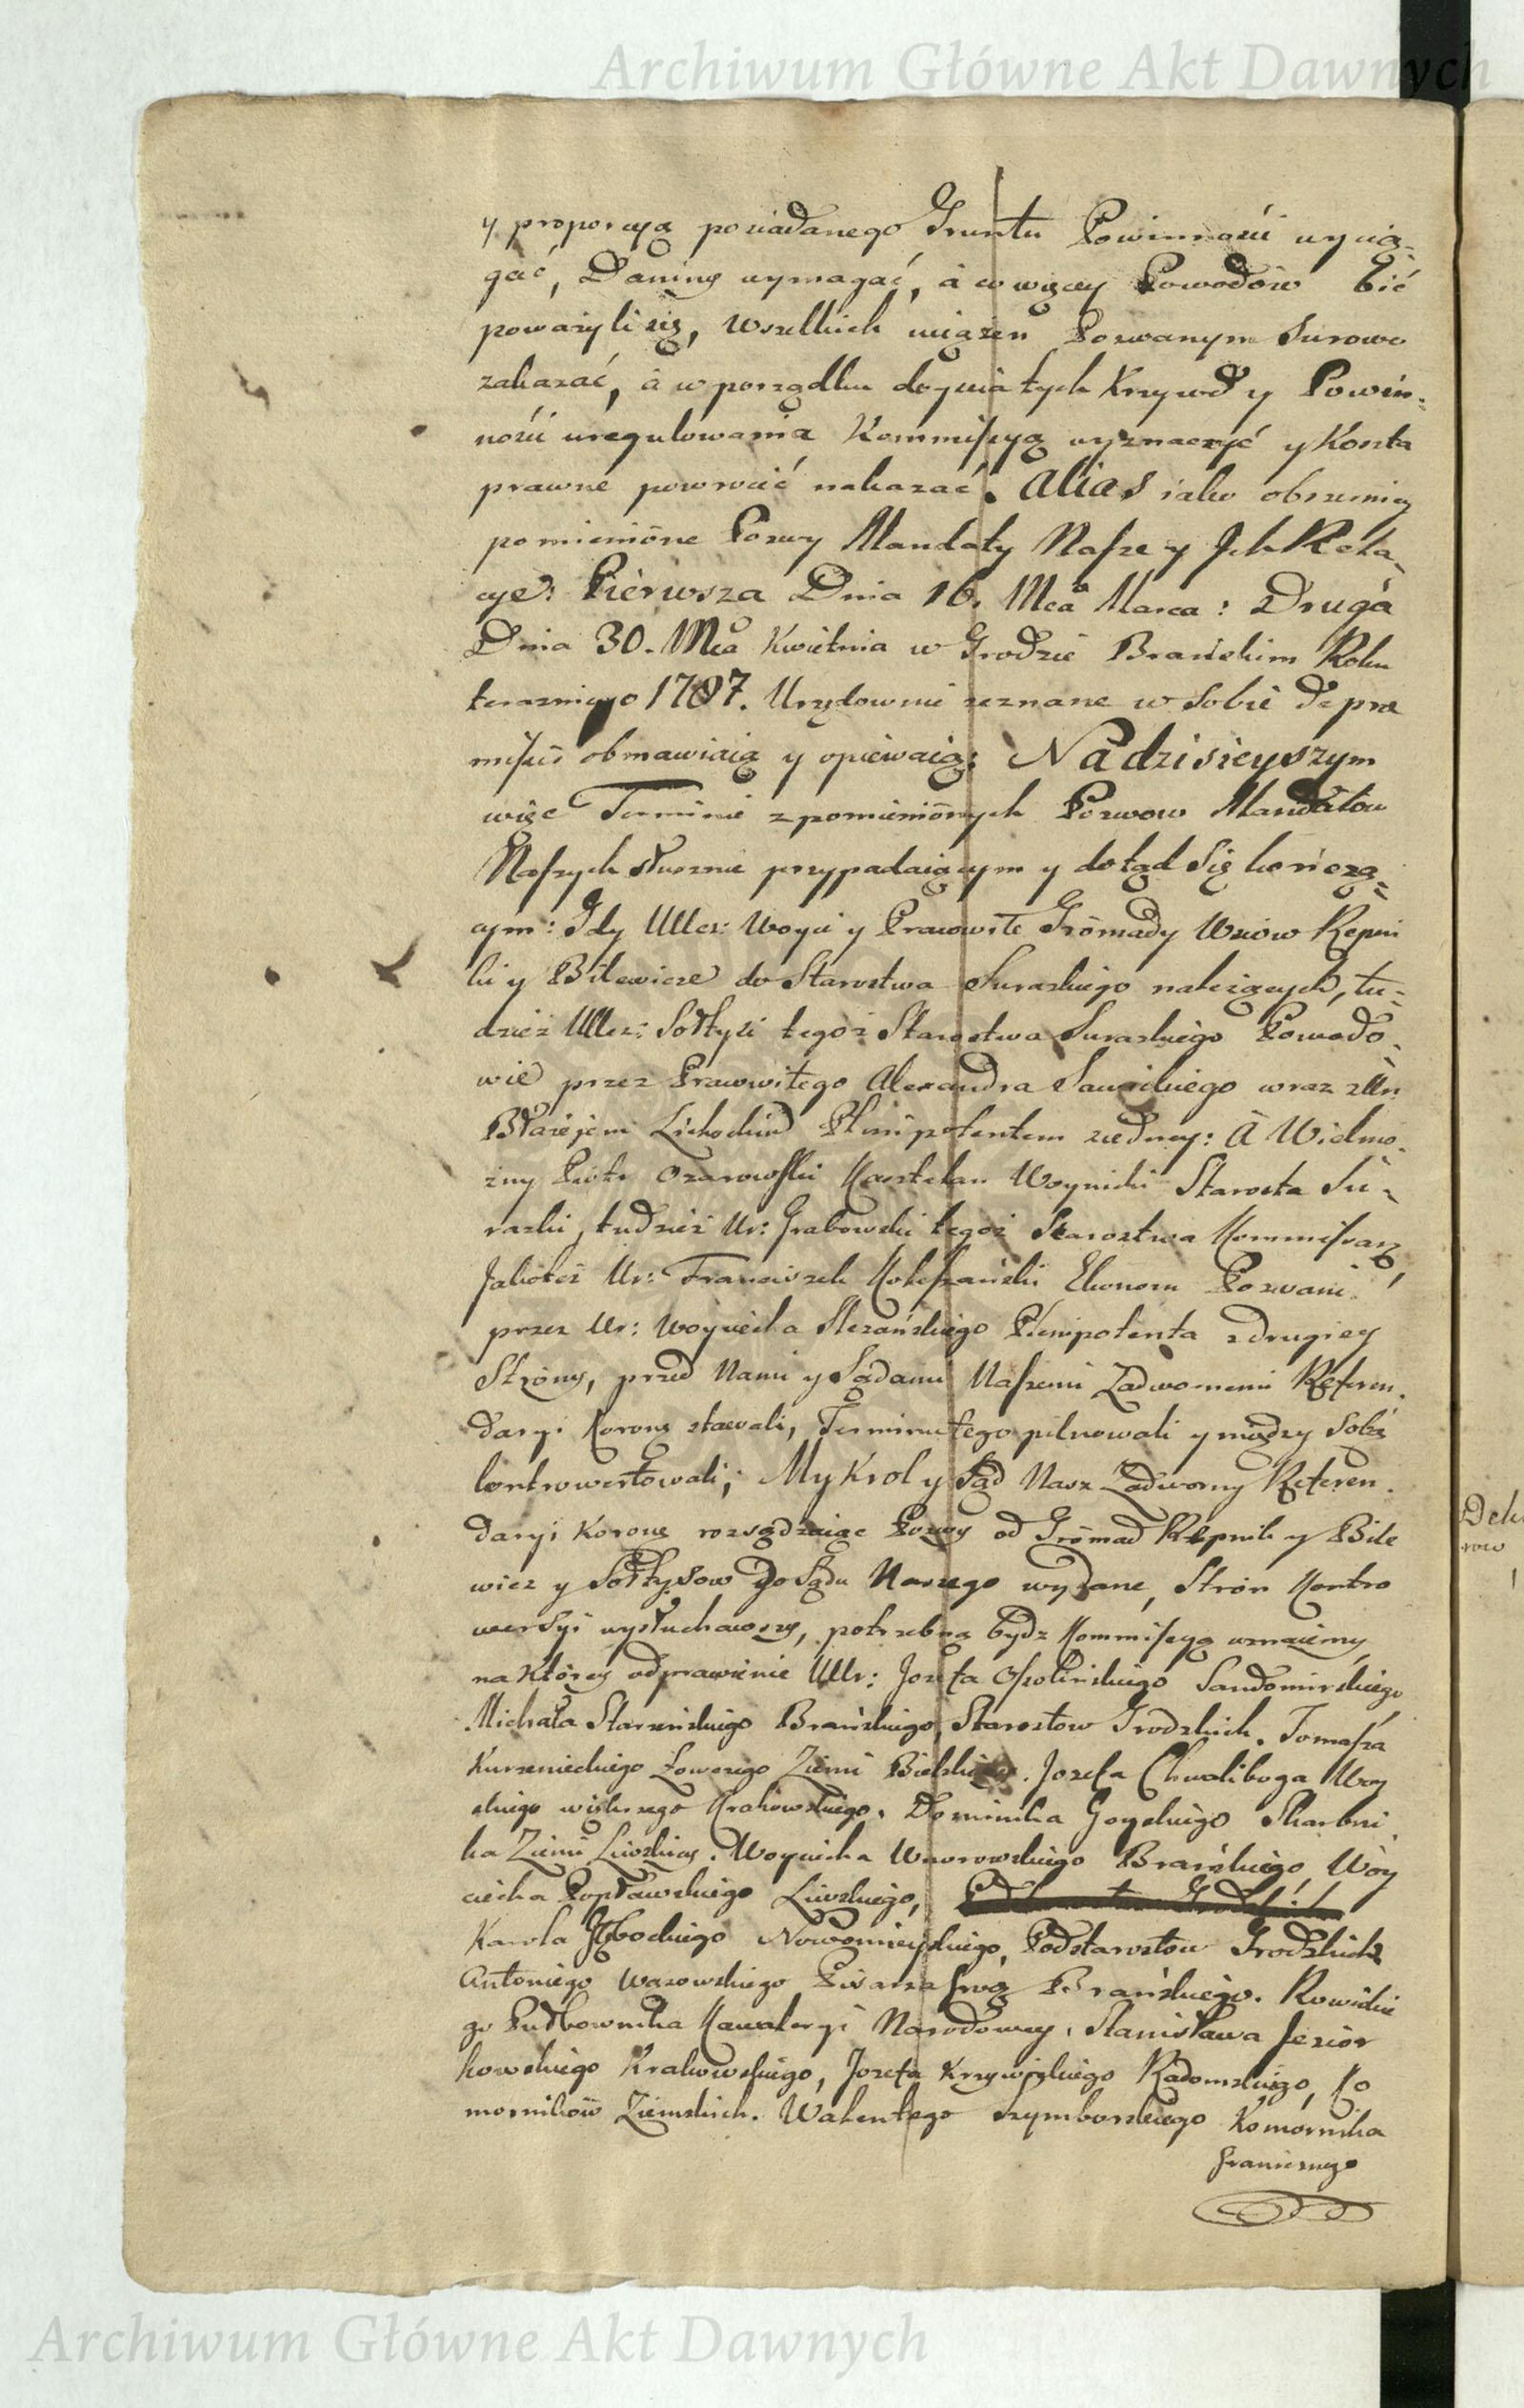 Archiwum Główne Akt Dawnych
y proporcyą posiadanego Gruntu Powinności wycią-
gać, Daniny wymagać, à co więcey Powodów bić
poważyli się, Wszelkich uciążen Pozwanym Surowo
zakazać, à w porządku doyścia tych Krzywd y Powin-
ności uregulowania Kommissyą wyznaczyć y Koszta
prawne powrócić nakazać. Alias iako obszerniey
pomienione Pozwy Mandaty Nasze y Jch Rela-
cye: Pierwsza Dnia 16. Mca Marca: Druga
Dnia 30. Mca Kwietnia w Grodzie Brańskim Roku
teraznieyo 1787. Urzędownie zeznane w Sobie de prae
missis obmawiaią y opiewaią: Na dzisieyszym
więc Terminie z pomienionych Pozwow Mandatow
Naszych słusznie przypadaiącym y dotąd Się kończą-
cym: Gdy UUcz: Woyci y Pracowite Gromady Wsiow Repni
ki y Bilewicze do Starostwa Suraskiego należących, tu-
dzież UUcz: Sołtysi tegoż Starostwa Suraskiego Powodo-
wie przez Pracowitego Alexandra Sawickiego wraz z Ur:
Błażejem Lichockim Plenipotentem z iedney: à Wielmo-
żny Piotr Ożarowski Kasztelan Woynicki Starosta Su-
razki, tudzież Ur: Grabowski tegoż Starostwa Kommissarz,
Jakoteż Ur: Franciszek Ekonom Pozwani
przez Ur: Woyciecha Plenipotenta z drugiey
Strony, przed Nami y Sądami Naszemi Zadwornemi Referen-
daryi Korony stawali, Terminu tego pilnowali y między Sobą
kontrowertowali; My Krol y Sąd Nasz Zadworny Referen-
daryi Korony rozsądzaiąc Pozwy od Gromad Repnik y Bile
wicz y Sołtysow do Sądu Naszego wydane, Stron Kontro
wersyi wysłuchawszy, potrzebną bydz Kommissyą uznaiemy
na którey odprawienie UUr: Jozefa Ossolińskiego Sandomirskiego
Michała Starzeńskiego Brańskiego, Starostow Grodzkich. Tomasza
Kurzenieckiego Łowczego Ziemi Bielskiey. Jozefa Chwaliboga Woy
skiego większego Krakowskiego. Dominika Skarbni
ka Ziemi Liwskiey. Woyciecha Brańskiego, Woy
ciecha Popławskiego Liwskiego,
Karola Nowomieyskiego, Podstarostow Grodzkich
Antoniego Wazowskiego Pisarza Brańskiego.
go Pułkownika Kawaleryi Narodowey, Stanisława Jezior
kowskiego Krakowskiego, Jozefa Radomskiego, Ko
mornikow Ziemskich. Walentego Szymborskiego Komornika
Granicznego
Archiwum Główne Akt Dawnych